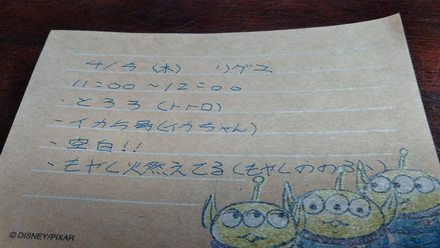 4/5 (木) リゲユ
11:00〜12:00
・とろろ(トトロ)
・イカ5号(イカちゃん)
・空白!!
・もやし火然えてる(もやしののろい)
©DISNEY/PIXAR